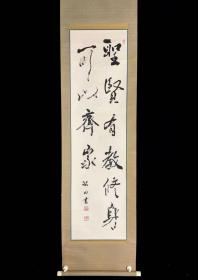 聖賢有教修身
可以齊家